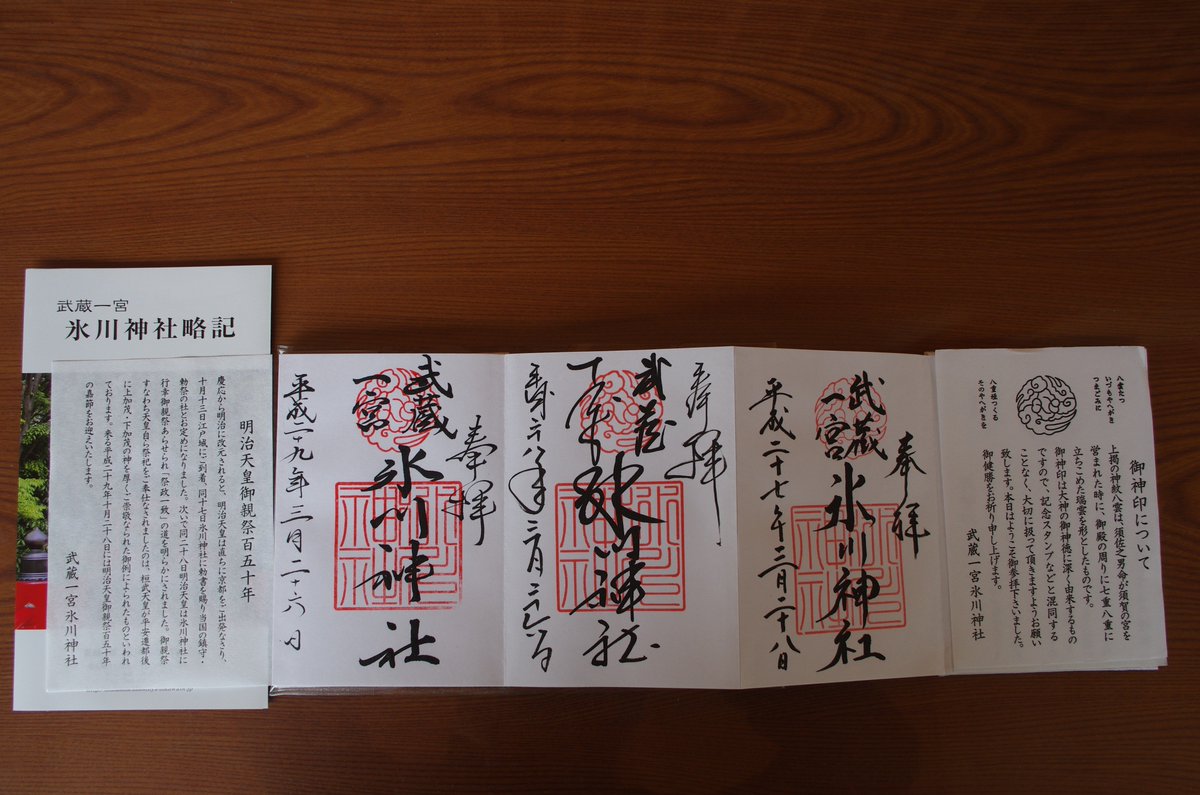 武蔵一宮
氷川神社略記
明治天皇御親祭百五十年
慶応から明治に改元されると、明治天皇は直ちに京都をご出発なさり、
十月十三日江戸城にご到着、同十七日氷川神社に勅書を賜り当国の鎮守・
勅祭の社とお定めになりました。次いで同二十八日明治天皇は氷川神社に
行幸御親祭あらせられ「祭政一致」の道を明らかにされました。御親祭
すなわち天皇自ら祭祀をご奉仕なされましたのは、桓武天皇が平安遷都後
に上加茂、下加茂の神を厚くご崇敬なられた御例によられたものといわれ
ております。来る平成二十九年十月二十八日には明治天皇御親祭百五十年
の嘉節をお迎えいたします。
武蔵一宮氷川神社
奉拝
武蔵
一宮
氷川神社
平成二十九年三月二十六日
奉拝
武蔵
氷川神社
奉拝
武蔵
一宮
氷川神社
平成二十七年三月二十八日
八雲たつ
いづもやへがき
つまごみに
八重垣つくる
そのやへがきを
御神印について
上掲の神紋八雲は、須佐之男命が須賀の宮を
営まれた時に、御殿の周りに七重八重に
立ちこめた瑞雲を形としたものです。
御神印は大神の御神徳に深く由来するもの
ですので、記念スタンプなどと混同する
ことなく、大切に扱って頂きますようお願い
致します。本日はようこそ御参拝下さいました。
御健勝をお祈り申し上げます。
武蔵一宮氷川神社